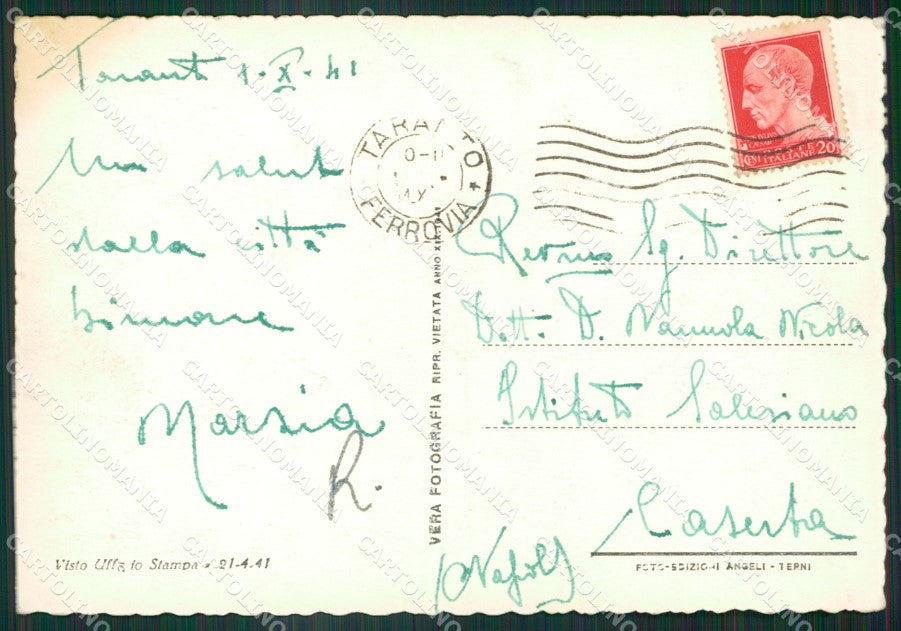 Taranto 1-X-41
Un saluto
dalla città
bimare
Marzia
R.
Visto Ufficio Stampa - 21-4-41
TARANTO
FERROVIA
VERA FOTOGRAFIA RIPR. VIETATA ANNO XIX
POSTE
ITALIANE
CENT 20
Revmo Sg. Direttore
Dott. D. Nannola Nicola
Istituto Salesiano
Caserta
(Napoli)
FOTO-EDIZIONI ANGELI - TERNI
CARTOLINOMANIA